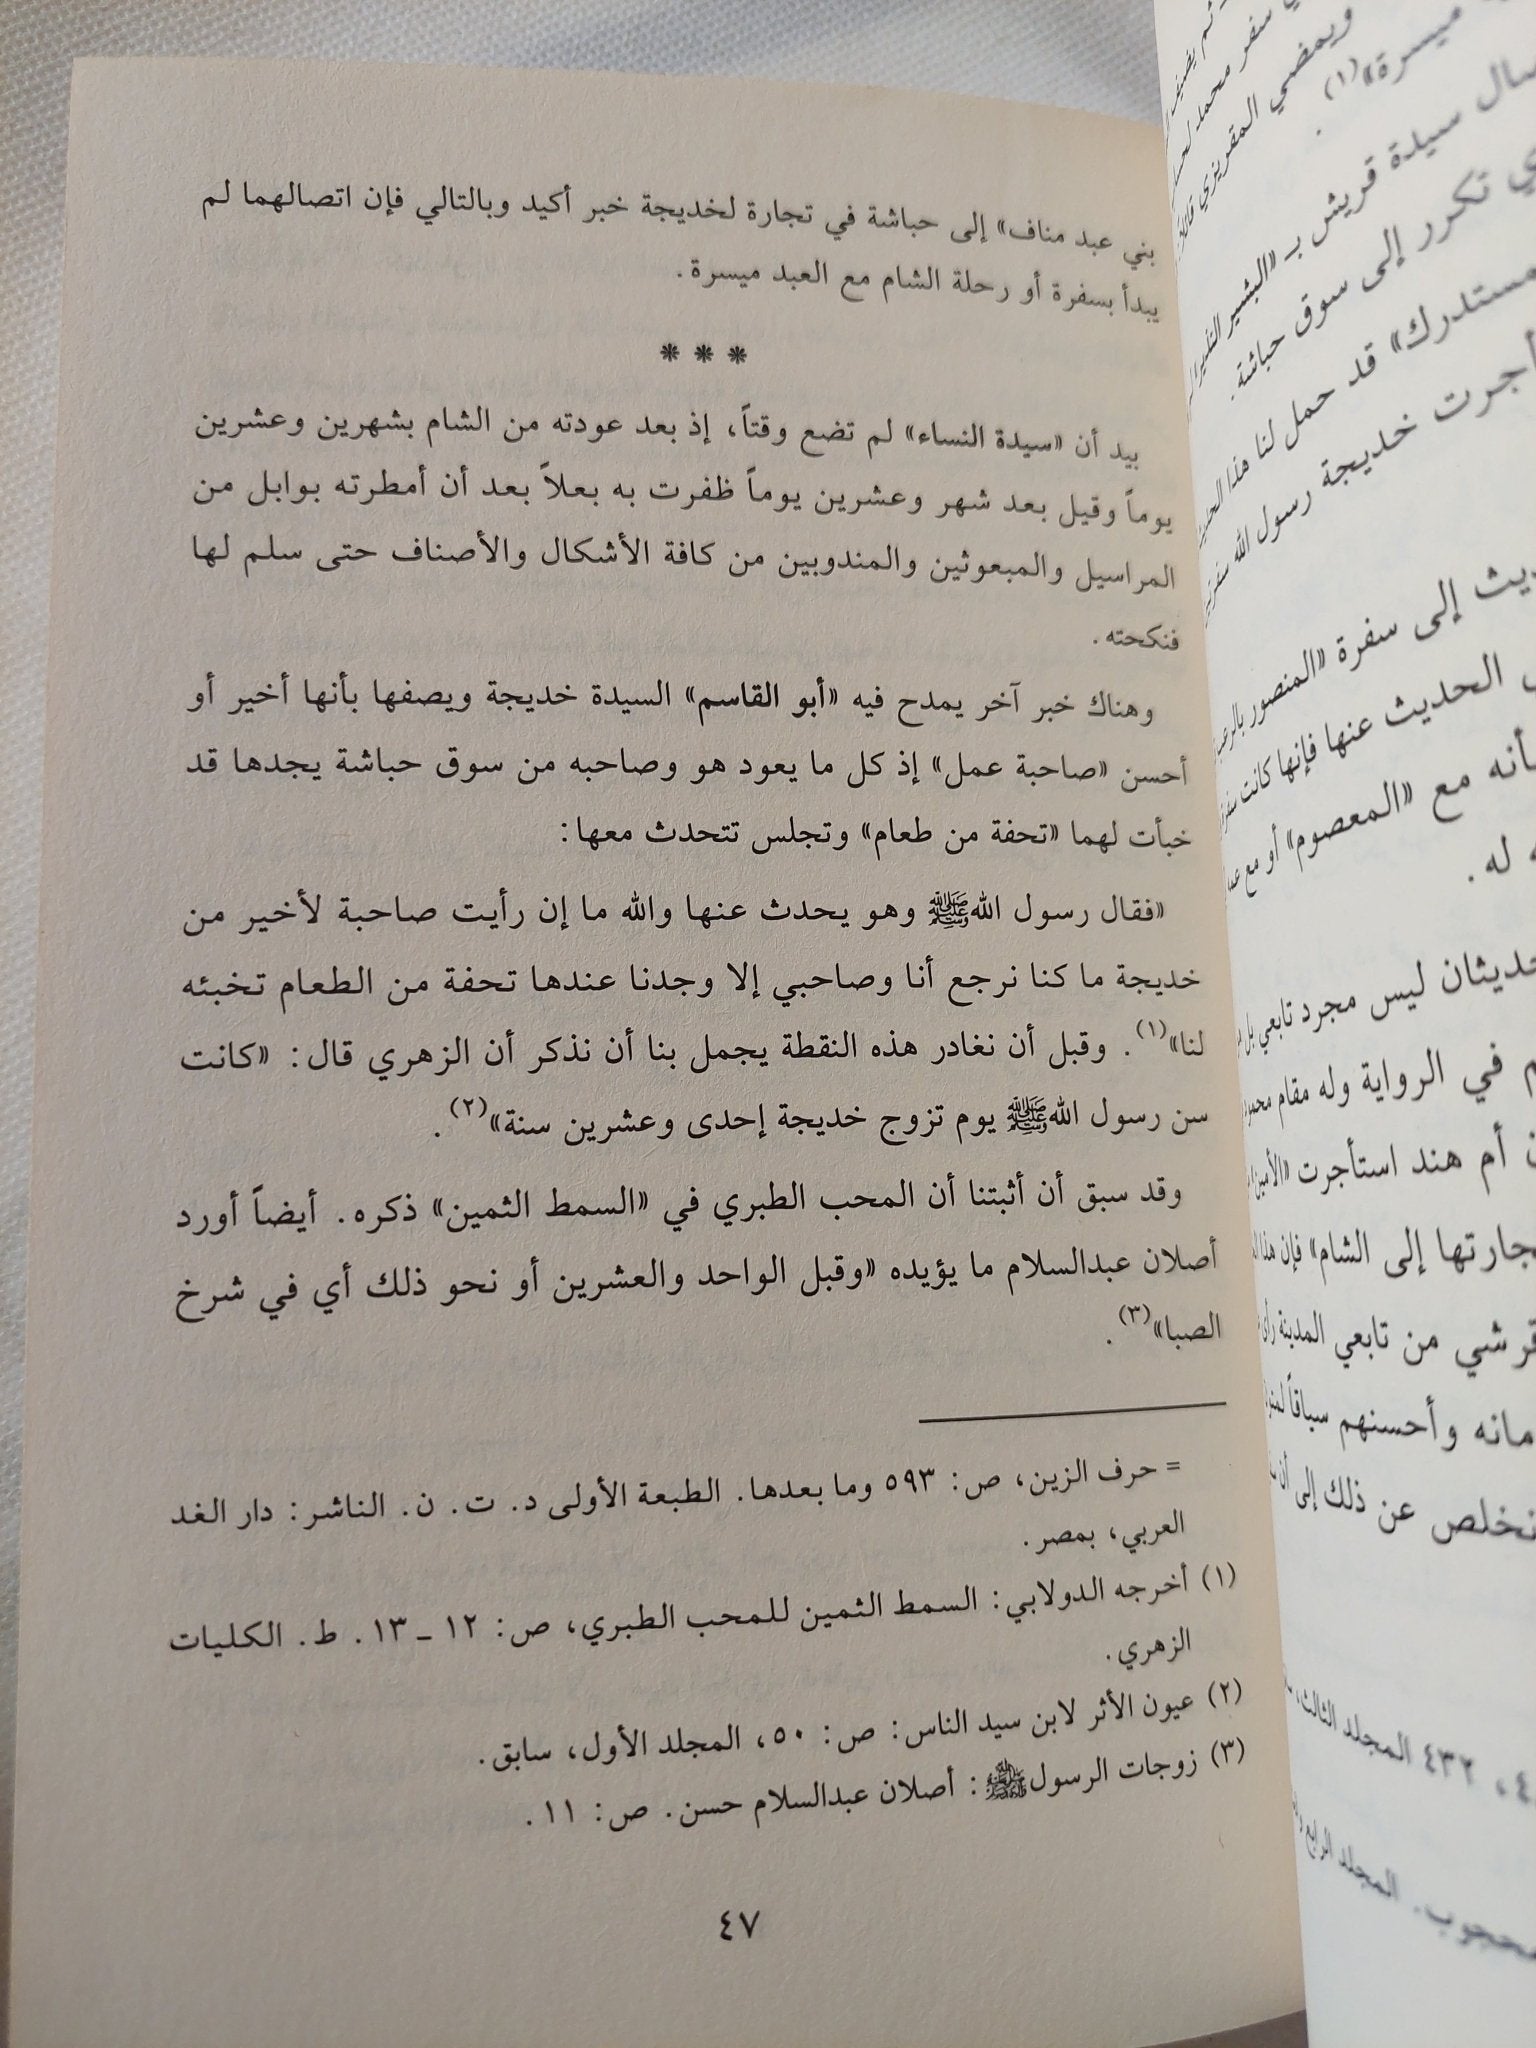 بني عبد مناف» إلى حباشة في تجارة لخديجة خبر أكيد وبالتالي فإن اتصالهما لم
يبدأ بسفرة أو رحلة الشام مع العبد ميسرة.
* * *
بيد أن «سيدة النساء» لم تضع وقتاً، إذ بعد عودته من الشام بشهرين وعشرين
يوماً وقيل بعد شهر وعشرين يوماً ظفرت به بعلاً بعد أن أمطرته بوابل من
المراسيل والمبعوثين والمندوبين من كافة الأشكال والأصناف حتى سلم لها
فنكحته.
وهناك خبر آخر يمدح فيه «أبو القاسم» السيدة خديجة ويصفها بأنها أخير أو
أحسن «صاحبة عمل» إذ كل ما يعود هو وصاحبه من سوق حباشة يجدها قد
خبأت لهما «تحفة من طعام» وتجلس تتحدث معها:
«فقال رسول الله ﷺ وهو يحدث عنها والله ما إن رأيت صاحبة لأخير من
خديجة ما كنا نرجع أنا وصاحبي إلا وجدنا عندها تحفة من الطعام تخبئه
لنا»(١). وقبل أن نغادر هذه النقطة يجمل بنا أن نذكر أن الزهري قال: «كانت
سن رسول الله ﷺ يوم تزوج خديجة إحدى وعشرين سنة»(٢).
وقد سبق أن أثبتنا أن المحب الطبري في «السمط الثمين» ذكره. أيضاً أورد
أصلان عبدالسلام ما يؤيده «وقبل الواحد والعشرين أو نحو ذلك أي في شرخ
الصبا»(٣).
= حرف الزين، ص: ٥٩٣ وما بعدها. الطبعة الأولى د. ت. ن. الناشر: دار الغد
العربي، بمصر.
(١) أخرجه الدولابي: السمط الثمين للمحب الطبري، ص: ١٢ ـ ١٣. ط. الكليات
الزهري.
(٢) عيون الأثر لابن سيد الناس: ص: ٥٠، المجلد الأول، سابق.
(٣) زوجات الرسول ﷺ: أصلان عبدالسلام حسن. ص: ١١.
٤٧
ويمضي المقريزي
ميسرة»(١).
سيدة قريش بـ «البشير
تكرر إلى سوق حباشة.
قد حمل لنا هذا
خديجة رسول الله
إلى سفرة «المنصور
الحديث عنها فإنها كانت
مع «المعصوم» أو مع
له.
ليس مجرد تابعي
في الرواية وله مقام
أم هند استأجرت
إلى الشام» فإن
من تابعي المدينة
وأحسنهم سباقاً
عن ذلك إلى أن
٤٣٢ المجلد الثالث،
المجلد الرابع